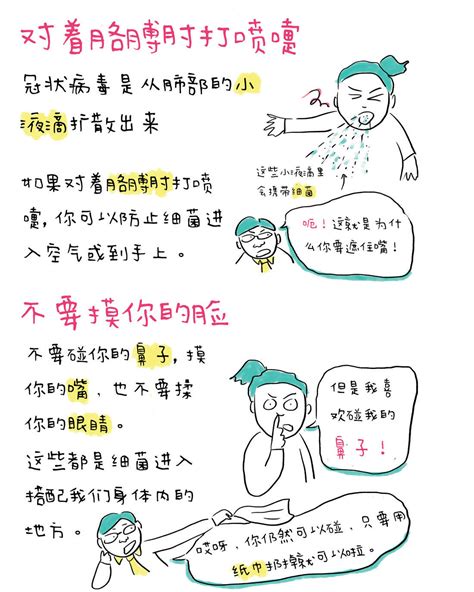 对着胳膊肘打喷嚏
冠状病毒是从肺部的小
液滴扩散出来
这些小液滴里
会携带细菌
如果对着胳膊肘打喷
嚏，你可以防止细菌进
入空气或到手上。
呃！这就是为什
么你要遮住嘴！
不要摸你的脸
不要碰你的鼻子，摸
你的嘴，也不要揉
你的眼睛。
这些都是细菌进入
搭配我们身体内的
地方。
但是我喜
欢碰我的
鼻子！
哎呀、你仍然可以碰，只要用
纸巾擤就可以啦。